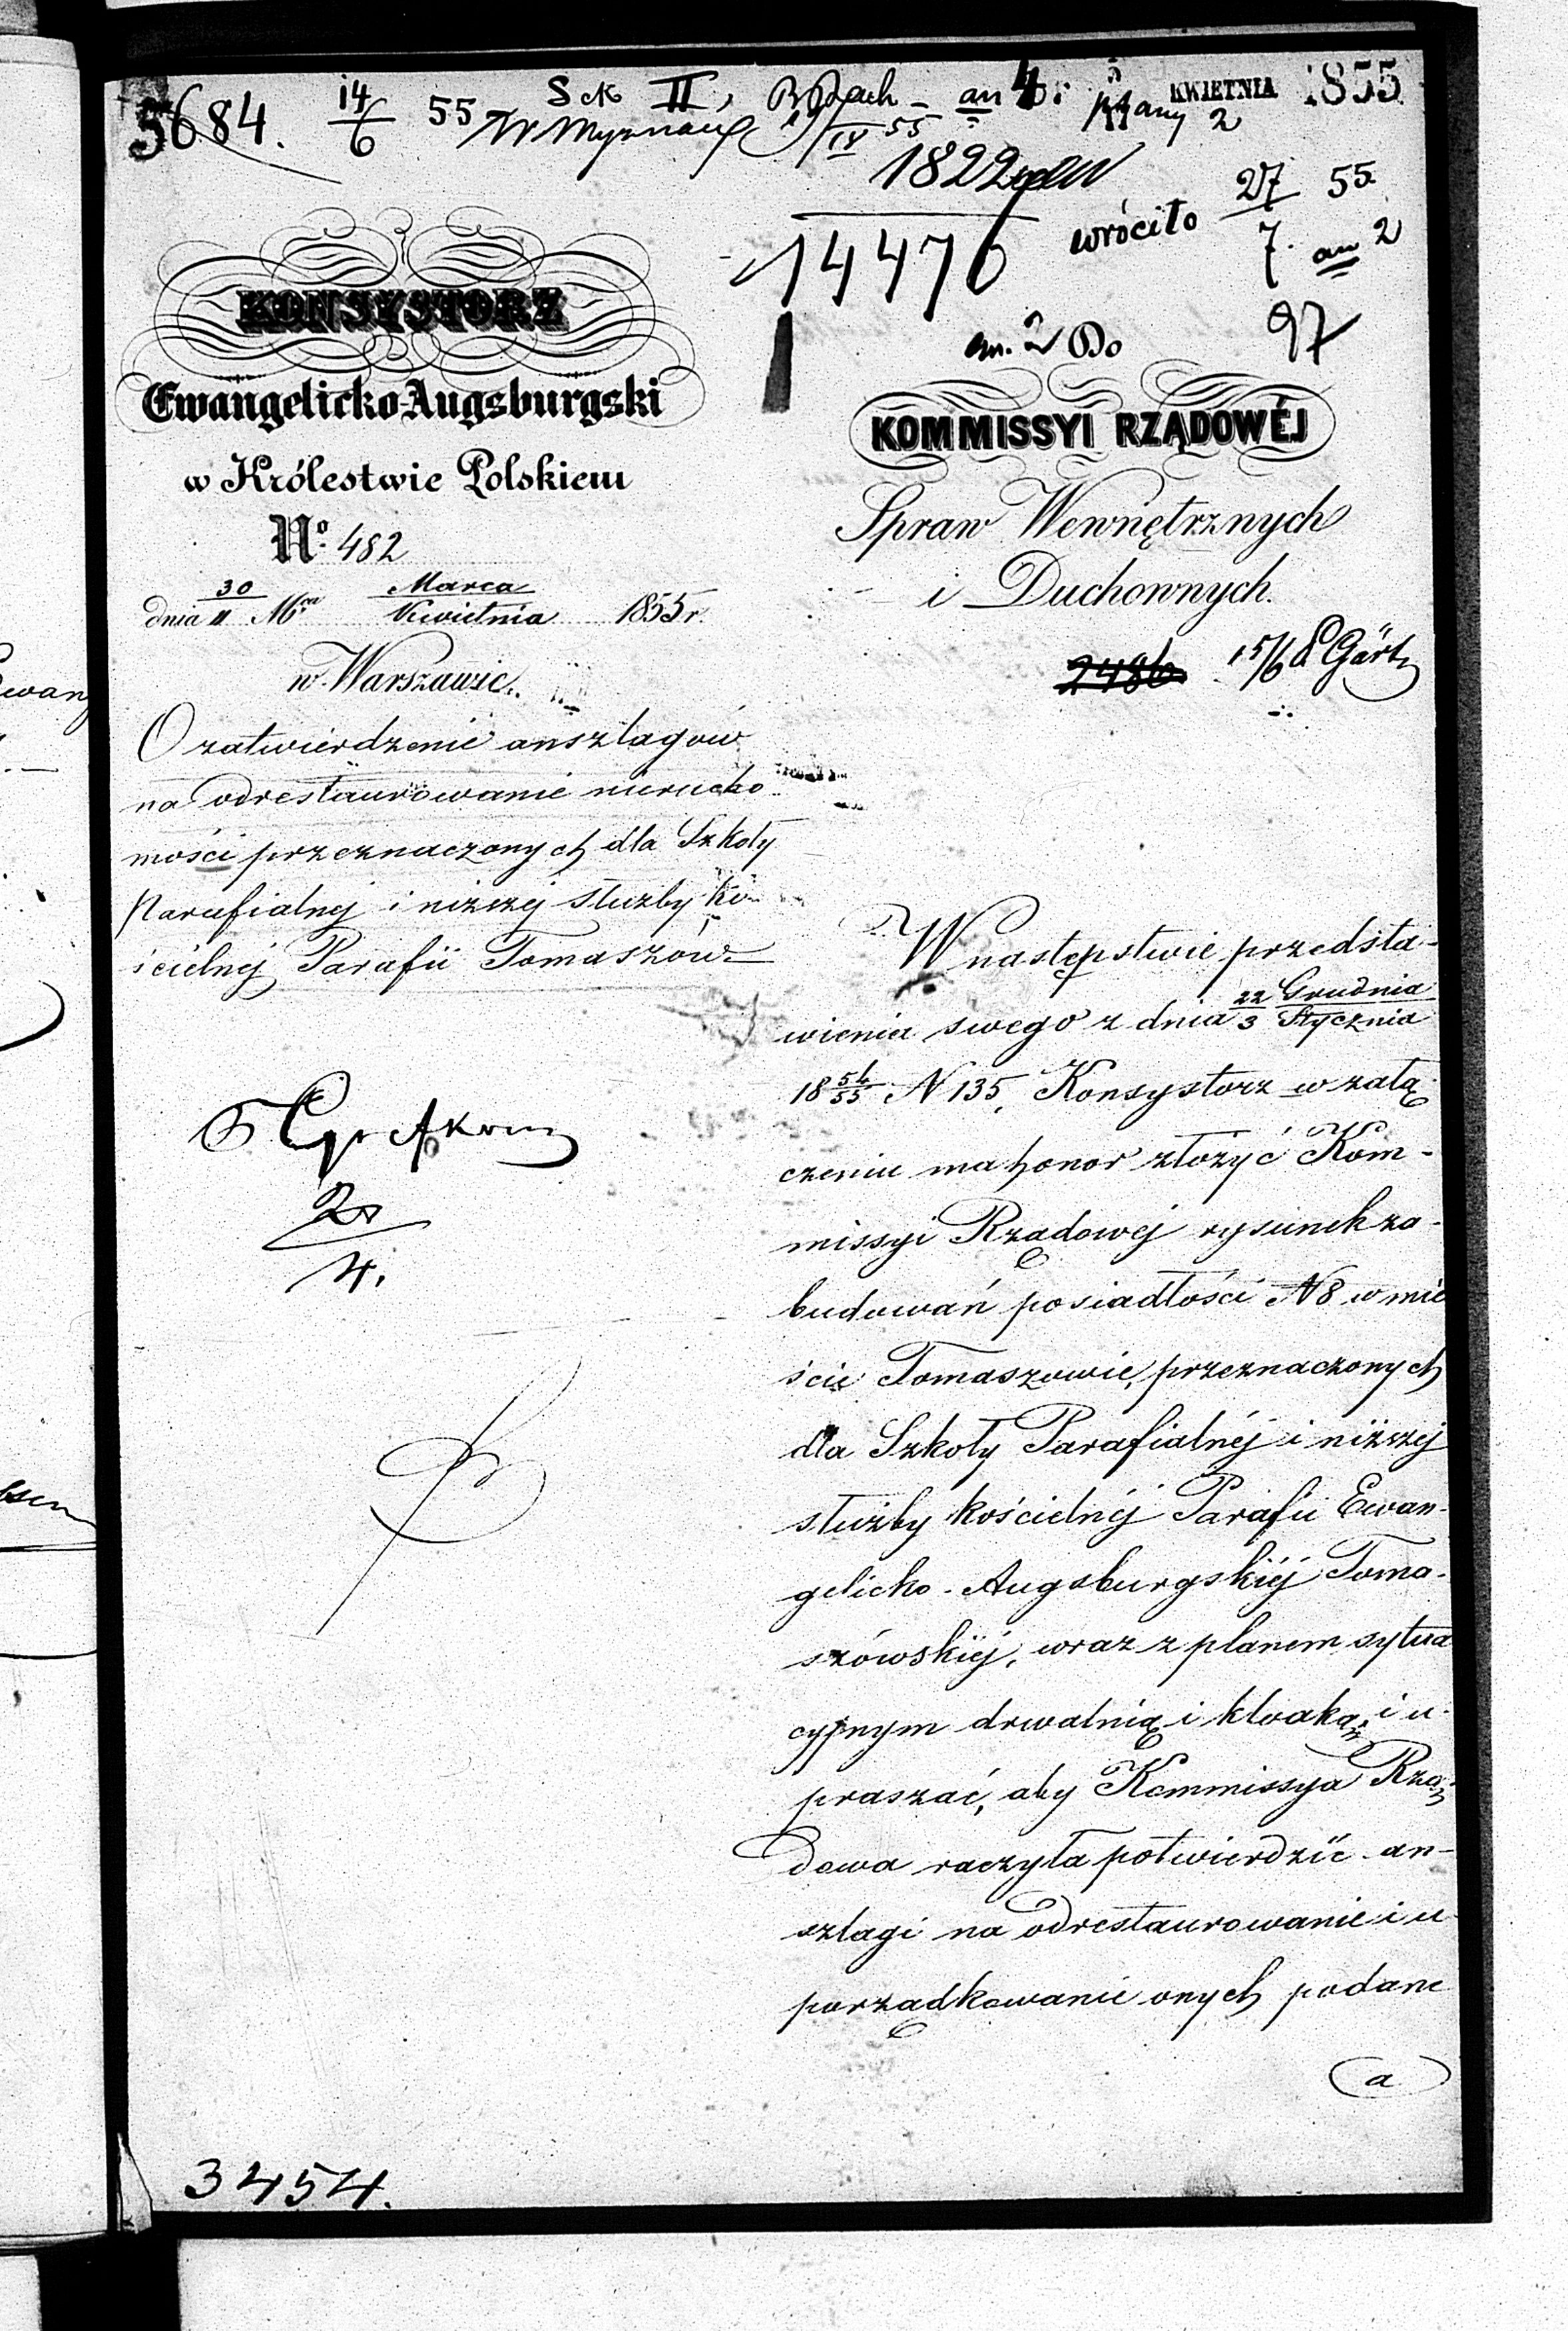 5684. 14/6 55 Sek II, an 4. KWIETNIA 1855
1822
14476 wróciło 27/7. 55. an 2
an. 2 Do 97
KONSYSTORZ
Ewangelicko Augsburgski
w Królestwie Polskiem
No. 482
dnia 30/11 Mca Marca/Kwietnia 1855 r.
w Warszawie.
O zatwierdzenie anszlagów
na odrestaurowanie nierucho-
mości przeznaczonych dla Szkoły
Parafialnej i niższej służby ko-
ścielnej Parafii Tomaszów
2/4.
KOMMISSYI RZĄDOWÉJ
Spraw Wewnętrznych
i Duchownych.
2486 15/6
W następstwie przedsta-
wienia swego z dnia 22/3 Grudnia/Stycznia
18 54/55 N 135, Konsystorz w załą-
czeniu ma honor złożyć Kom-
missyi Rządowej rysunek za-
budowań posiadłości N 8 w mie
ście Tomaszowie, przeznaczonych
dla Szkoły Parafialnéj i niższej
służby kościelnéj Parafii Ewan-
gelicko-Augsburgskiéj Toma-
szówskiéj, wraz z planem sytua
cyjnym drwalnią i kloaką, i u-
praszać, aby Kommissya Rzą-
dowa raczyła potwierdzić an-
szlagi na odrestaurowanie i u-
porządkowanie onych podane
a
3454.